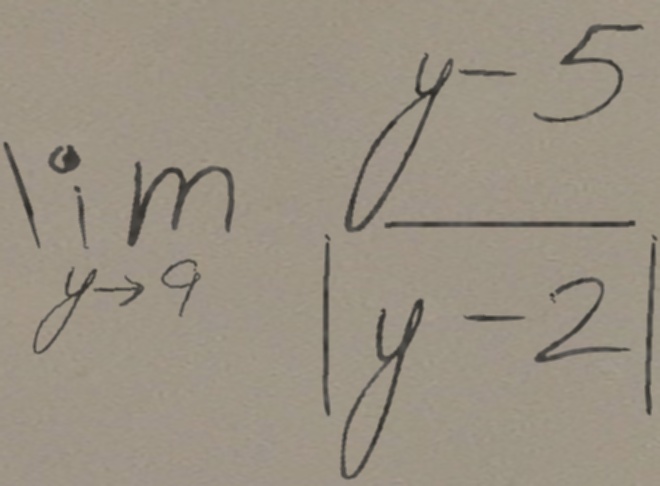 lim y→9 y-5 / |y-2|